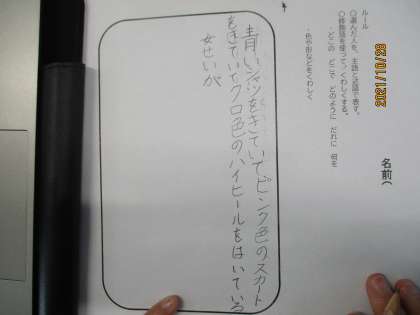 名前(
ルール
○選んだ人を、主語と述語で表す。
○修飾語を使って、くわしくする。
・どこの どこで どのように だれに 何を
・色や形などをくわしく
青いシャツをきていてピンク色のスカート
をきていてクロ色のハイヒールをはいている
女せいが
2021/10/28